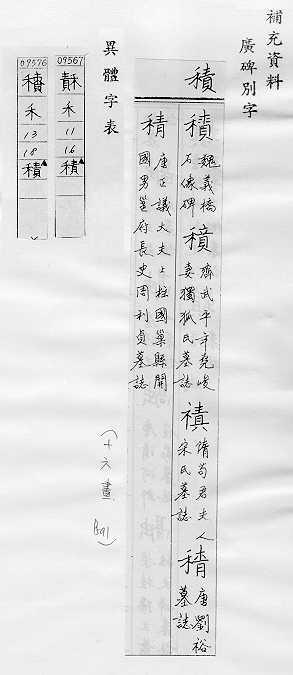 補充資料
廣碑別字
積
積
魏義橋
石像碑
積
齊武平年堯峻
妻獨孤氏墓誌
積
隋苟君夫人
宋氏墓誌
積
唐劉裕
墓誌
積
唐正議大夫上柱國巢縣開
國男邕府長史周利貞墓誌
異體字表
09567
禾
11
16
積
09576
禾
13
18
積
(十六畫 1591)